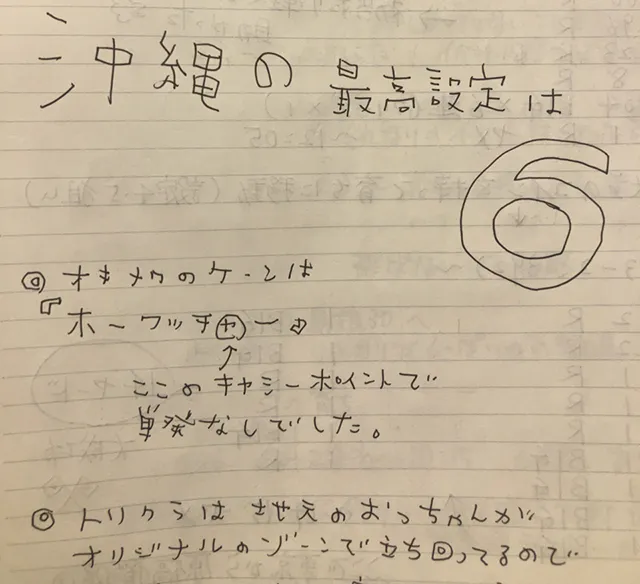 沖縄の最高設定は
6
◎ オキメクのケーとは
『ホーワッチャー』
↑
ここのキャシーポイントで
単発なしでした。
◎ トリクラは させえのおっちゃんが
オリジナルのゾーンで立ち回ってるので